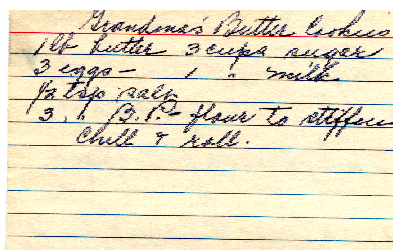 Grandma's Butter Cookies
1 lb butter 3 cups sugar
3 eggs — 1 " milk
1/2 tsp salt
3 " B.P. — flour to stiffen
Chill & roll.